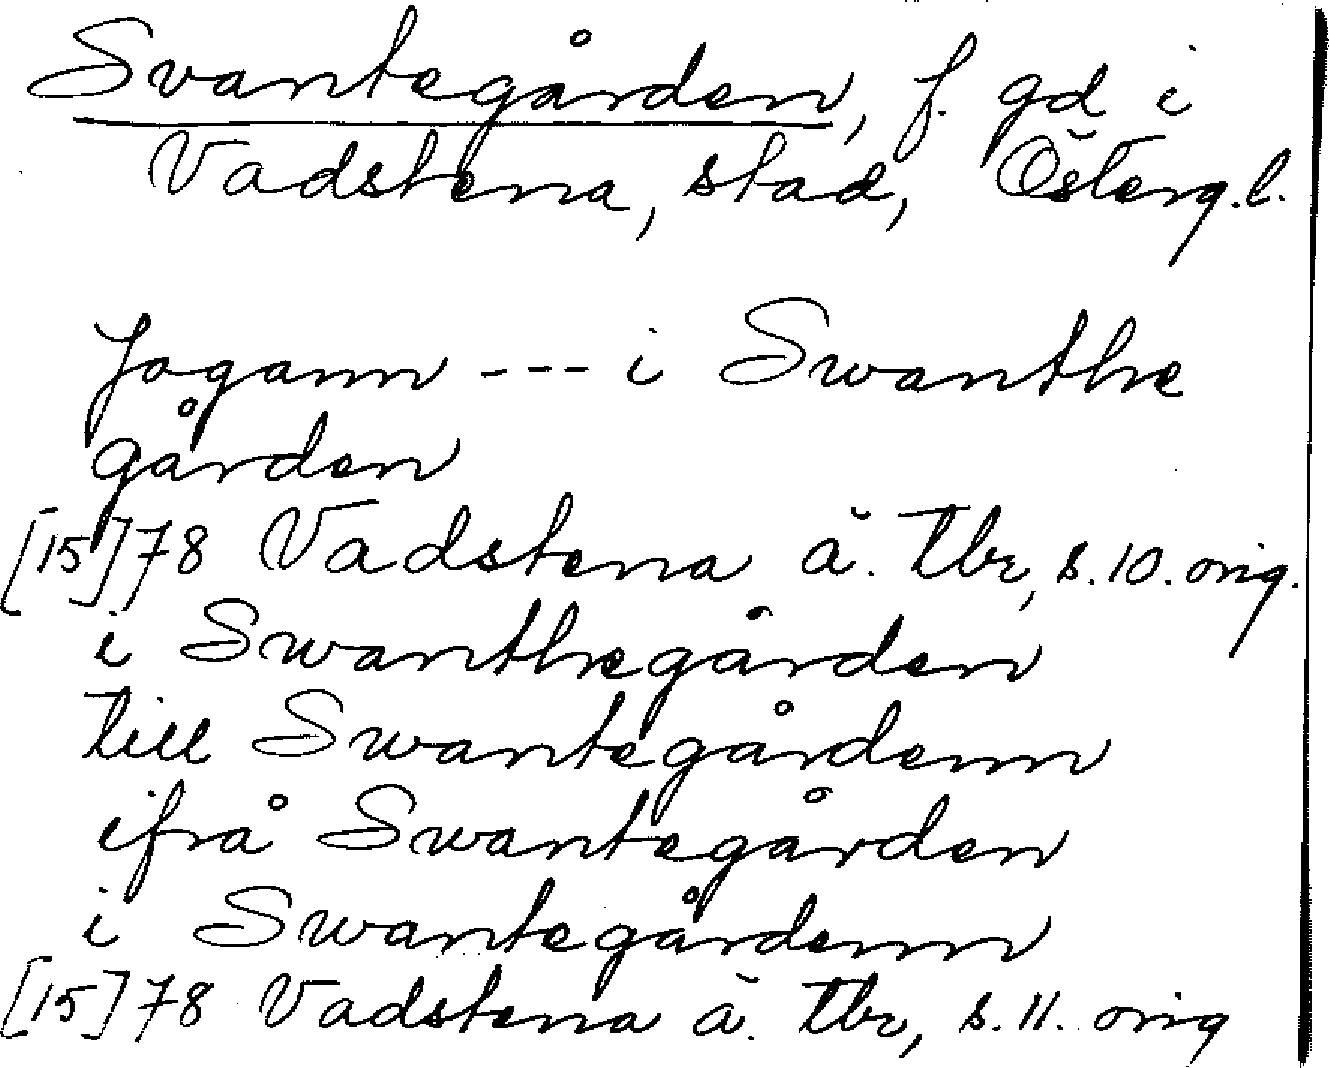 Svantegården, f. gd i
Vadstena, stad, Österg.l.
Jogann --- i Swanthe
gården
[15]78 Vadstena ä. tbr, s.10. orig.
i Swanthegården
till Swantegårdenn
ifrå Swantegården
i Swantegårdenn
[15]78 Vadstena ä. tbr, s.11. orig